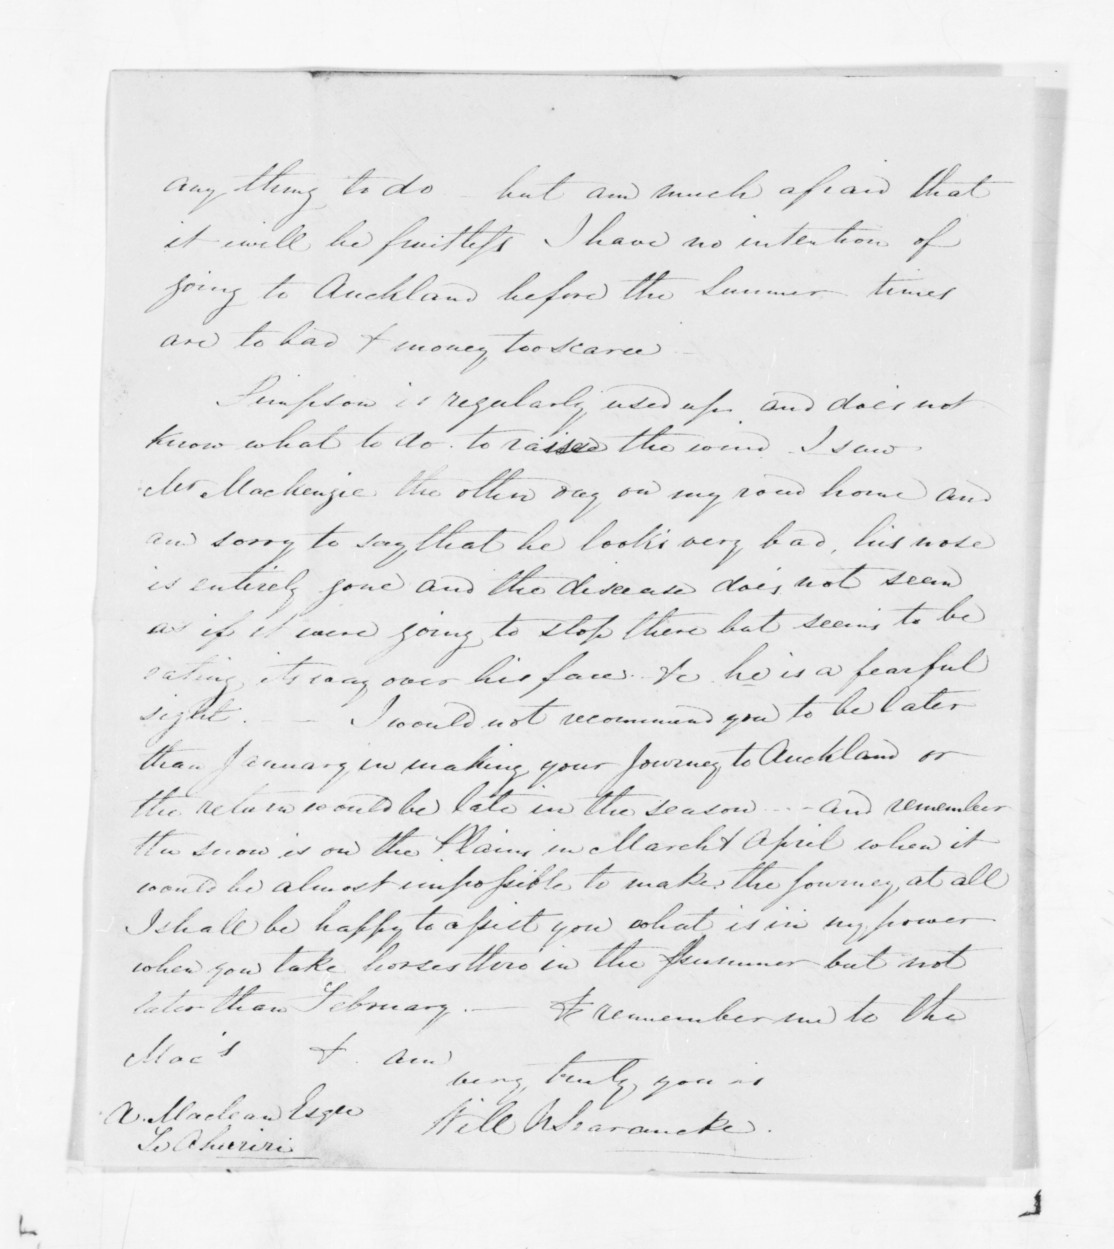 any thing to do - but am much afraid that
it will be fruitless I have no intention of
going to Auckland before the Summer times
are to bad & money too scarce -
Simpson is regularly used up. and does not
know what to do. to raise the wind. I saw
Mr Mackenzie the other day on my road home and
am sorry to say, that he looks very bad, his nose
is entirely gone and the disease does not seem
as if it were going to stop there but seems to be
eating its way over his face &c he is a fearful
sight. - - I would not recommend you to be later
than January in making your Journey to Auckland or
the return would be late in the season - - and remember
the snow is on the Plains in March & April when it
would be almost impossible to make the Journey at all
I shall be happy to assist you what is in my power
when you take horses thro in the summer but not
later than February. - & remember me to the
Mac's & am
very truly yours
Will N Searancke.
A. Maclean Esqre
Te Ahuriri